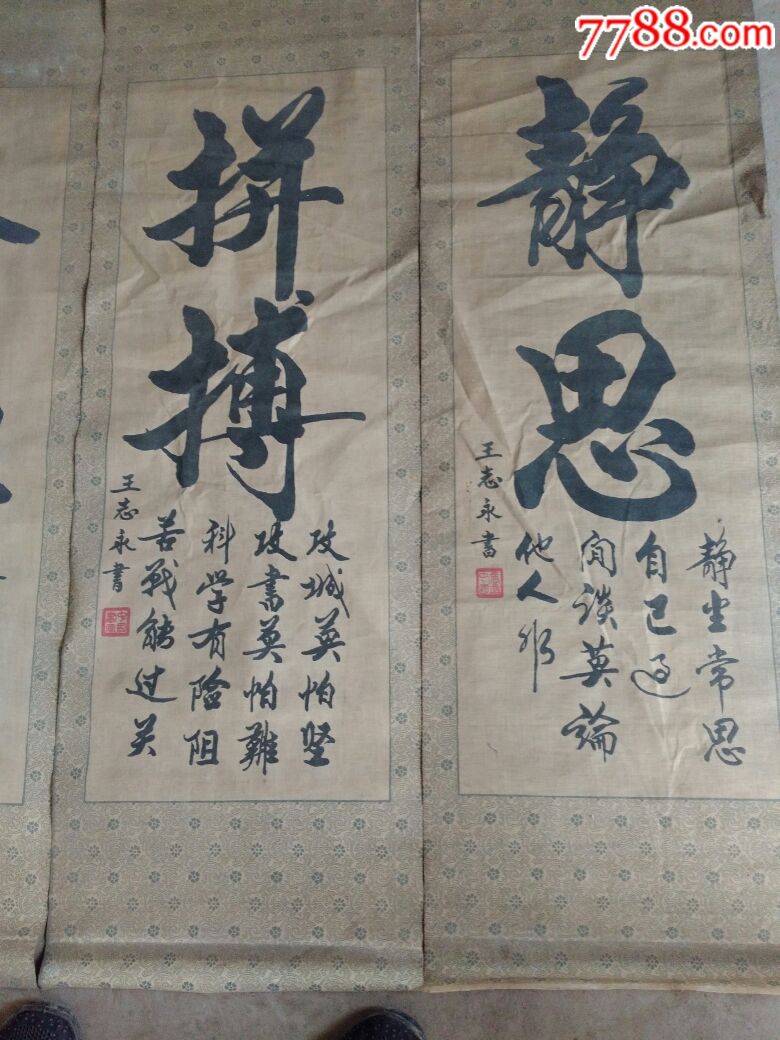 7788.com
静
思
静坐常思
自己过
闲谈莫论
他人非
王志永書
拼
搏
攻城莫怕坚
攻書莫怕難
科学有险阻
苦战能过关
王志永書